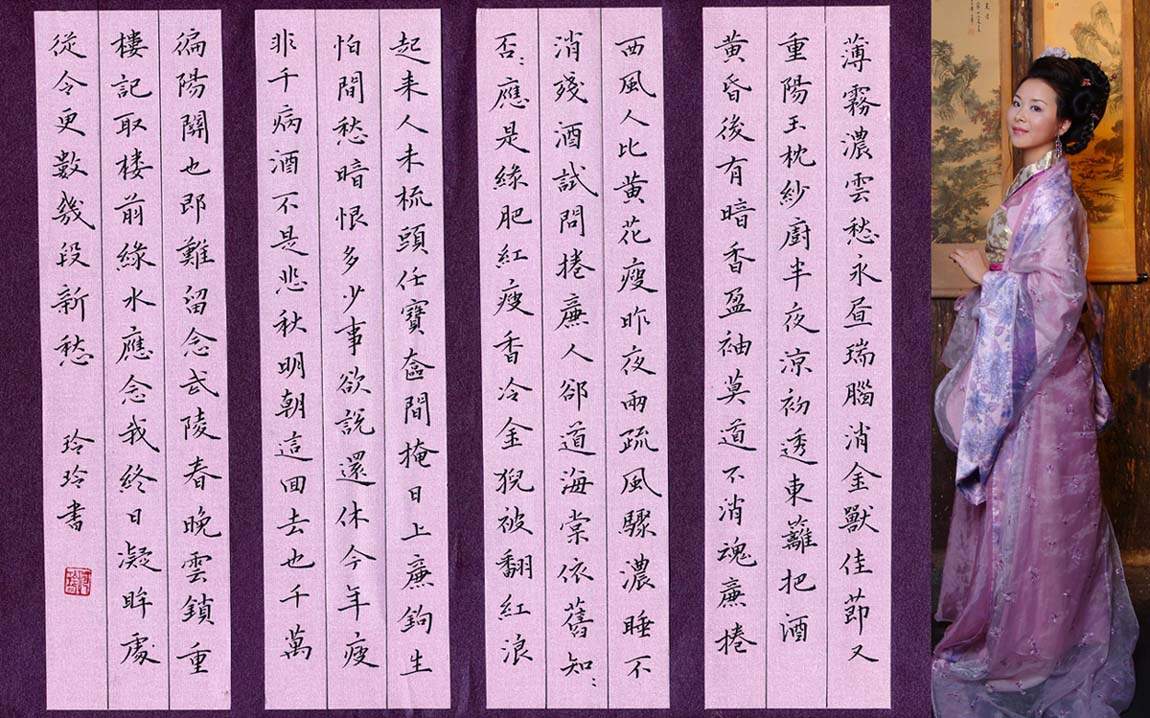 薄霧濃雲愁永昼瑞腦消金獸佳莭又
重陽玉枕紗廚半夜涼初透東籬把酒
黄昏後有暗香盈袖莫道不消魂廉捲
西風人比黄花瘦昨夜雨疏風驟濃睡不
消殘酒試問捲廉人卻道海棠依舊知:
否:應是綠肥紅瘦香冷金猊被翻紅浪
起来人未梳頭任寶奩間掩日上廉鉤生
怕間愁暗恨多少事欲說還休今年瘦
非千病酒不是悲秋明朝這回去也千萬
徧陽關也即難留念武陵春晚雲鎖重
樓記取楼前綠水應念我終日凝眸處
從今更數幾段新愁 玲玲書